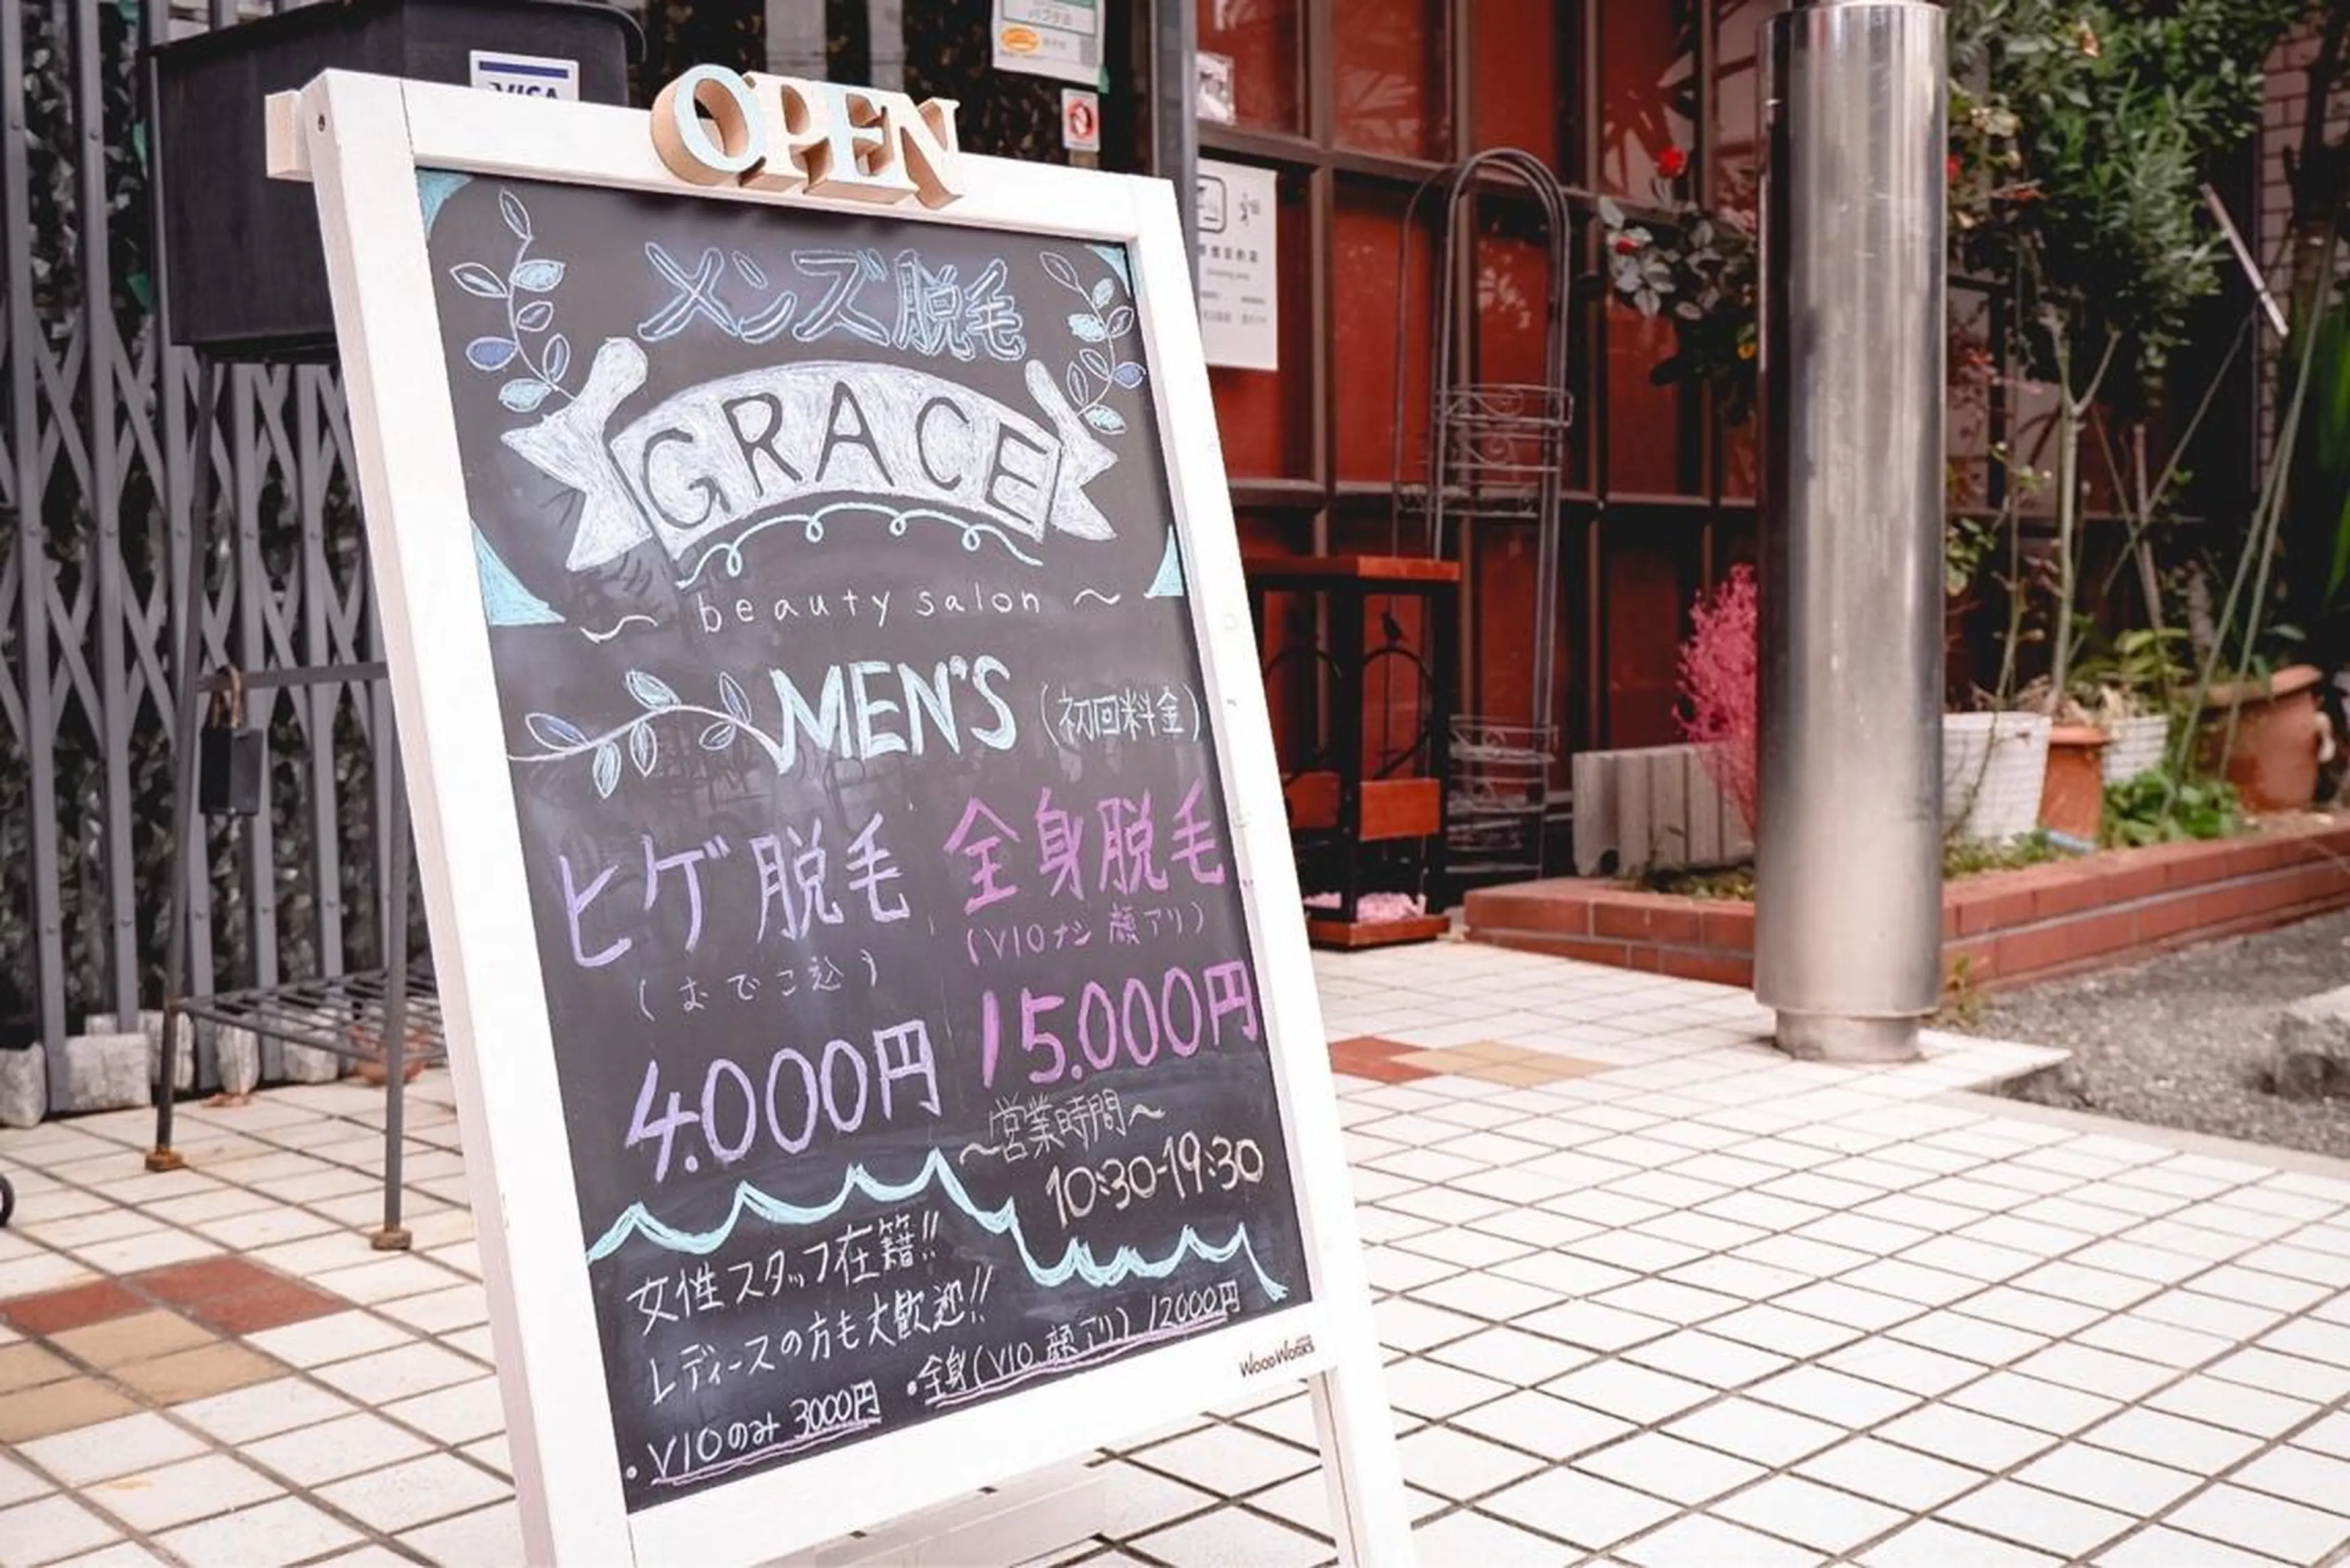 VISA
OPEN
メンズ脱毛
GRACE
～ beauty salon ～
MEN'S (初回料金)
ヒゲ脱毛
(おでこ込)
4.000円
全身脱毛
(VIOナシ 顔アリ)
15.000円
～営業時間～
10:30-19:30
女性スタッフ在籍!!
レディースの方も大歓迎!!
・VIOのみ 3000円
・全身(VIO 顔アリ) 12000円